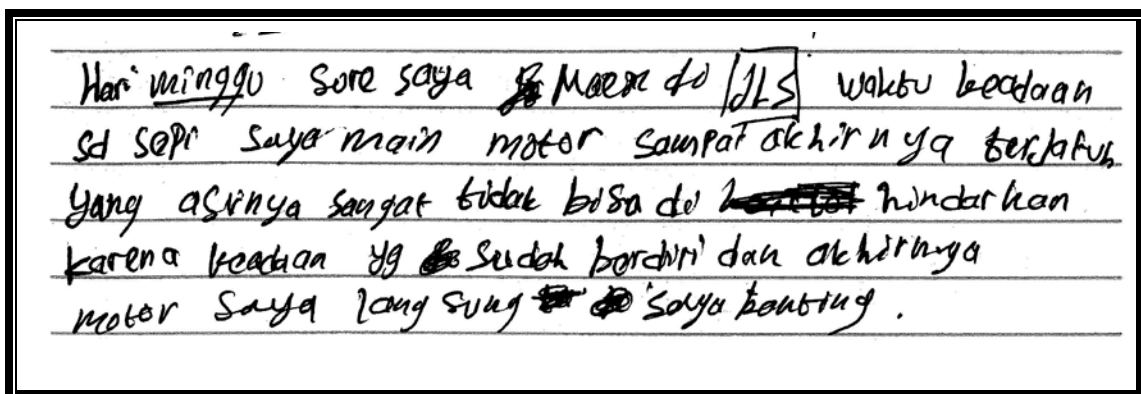 Hari minggu sore saya Maen di JLS waktu keadaan
sd sepi saya main motor sampai akhirnya terjatuh
yang asinya sangat tidak bisa di hindarkan
karena keadaan yg sudah berdiri dan akhirnya
motor saya langsung saya banting.